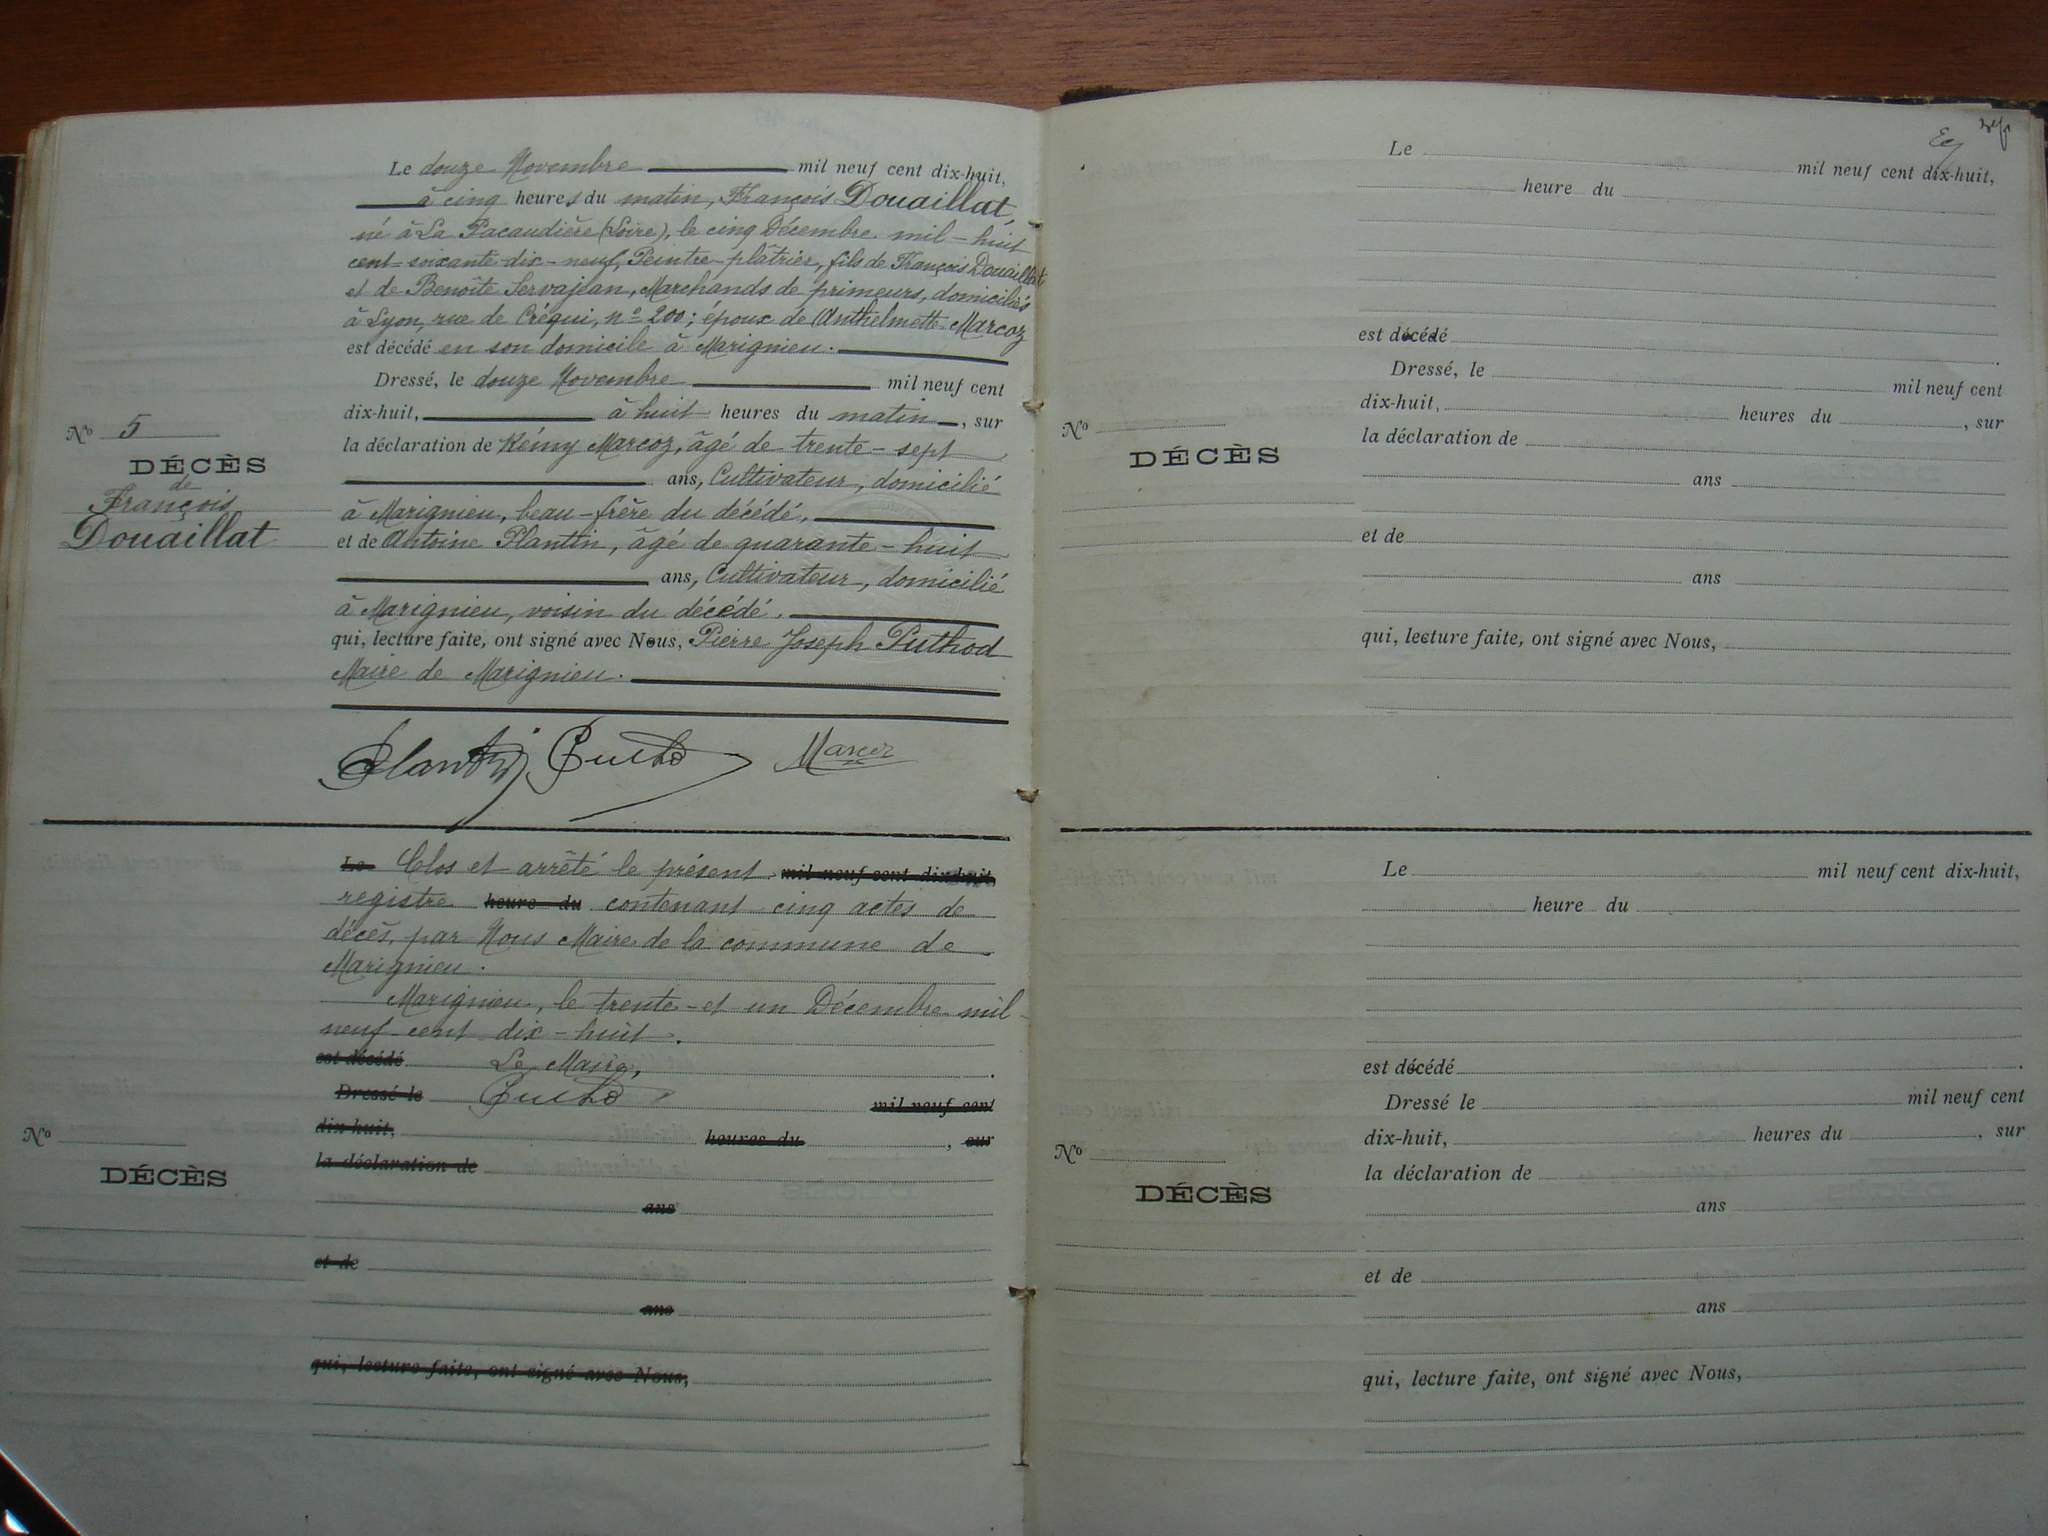 Le douze Novembre mil neuf cent dix-huit,
à cinq heures du matin, François Douaillat,
né à La Pacaudière (Loire), le cinq Décembre mil-huit
cent-soixante-dix-neuf, Peintre-plâtrier, fils de François Douaillat
et de Benoîte Servajean, Marchands de primeurs, domiciliés
à Lyon, rue de Créqui, n° 200; époux de Anthelmette Marcoz
est décédé en son domicile à Marignieu.
Dressé, le douze Novembre mil neuf cent
dix-huit, à huit heures du matin, sur
la déclaration de Rémy Marcoz, âgé de trente-sept
ans, Cultivateur, domicilié
à Marignieu, beau-frère du décédé,
et de Antoine Plantin, âgé de quarante-huit
ans, Cultivateur, domicilié
à Marignieu, voisin du décédé.
qui, lecture faite, ont signé avec Nous, Pierre Joseph Puthod
Maire de Marignieu.
Nº 5
DÉCÈS
de
François
Douaillat
Plantin Puthod Marcoz
Le Clos et arrêté le présent mil neuf cent dix-huit,
registre heure du contenant cinq actes de
décès, par Nous Maire de la commune de
Marignieu.
Marignieu, le trente-et un Décembre mil-
neuf cent dix-huit.
est décédé Le Maire,
Dressé le Puthod mil neuf cent
dix-huit, heures du , sur
la déclaration de
ans
et de
ans
qui, lecture faite, ont signé avec Nous,
Nº
DÉCÈS
Le mil neuf cent dix-huit,
heure du
est décédé
Dressé, le mil neuf cent
dix-huit, heures du , sur
la déclaration de
ans
et de
ans
qui, lecture faite, ont signé avec Nous,
Nº
DÉCÈS
Le mil neuf cent dix-huit,
heure du
est décédé
Dressé le mil neuf cent
dix-huit, heures du , sur
la déclaration de
ans
et de
ans
qui, lecture faite, ont signé avec Nous,
Nº
DÉCÈS